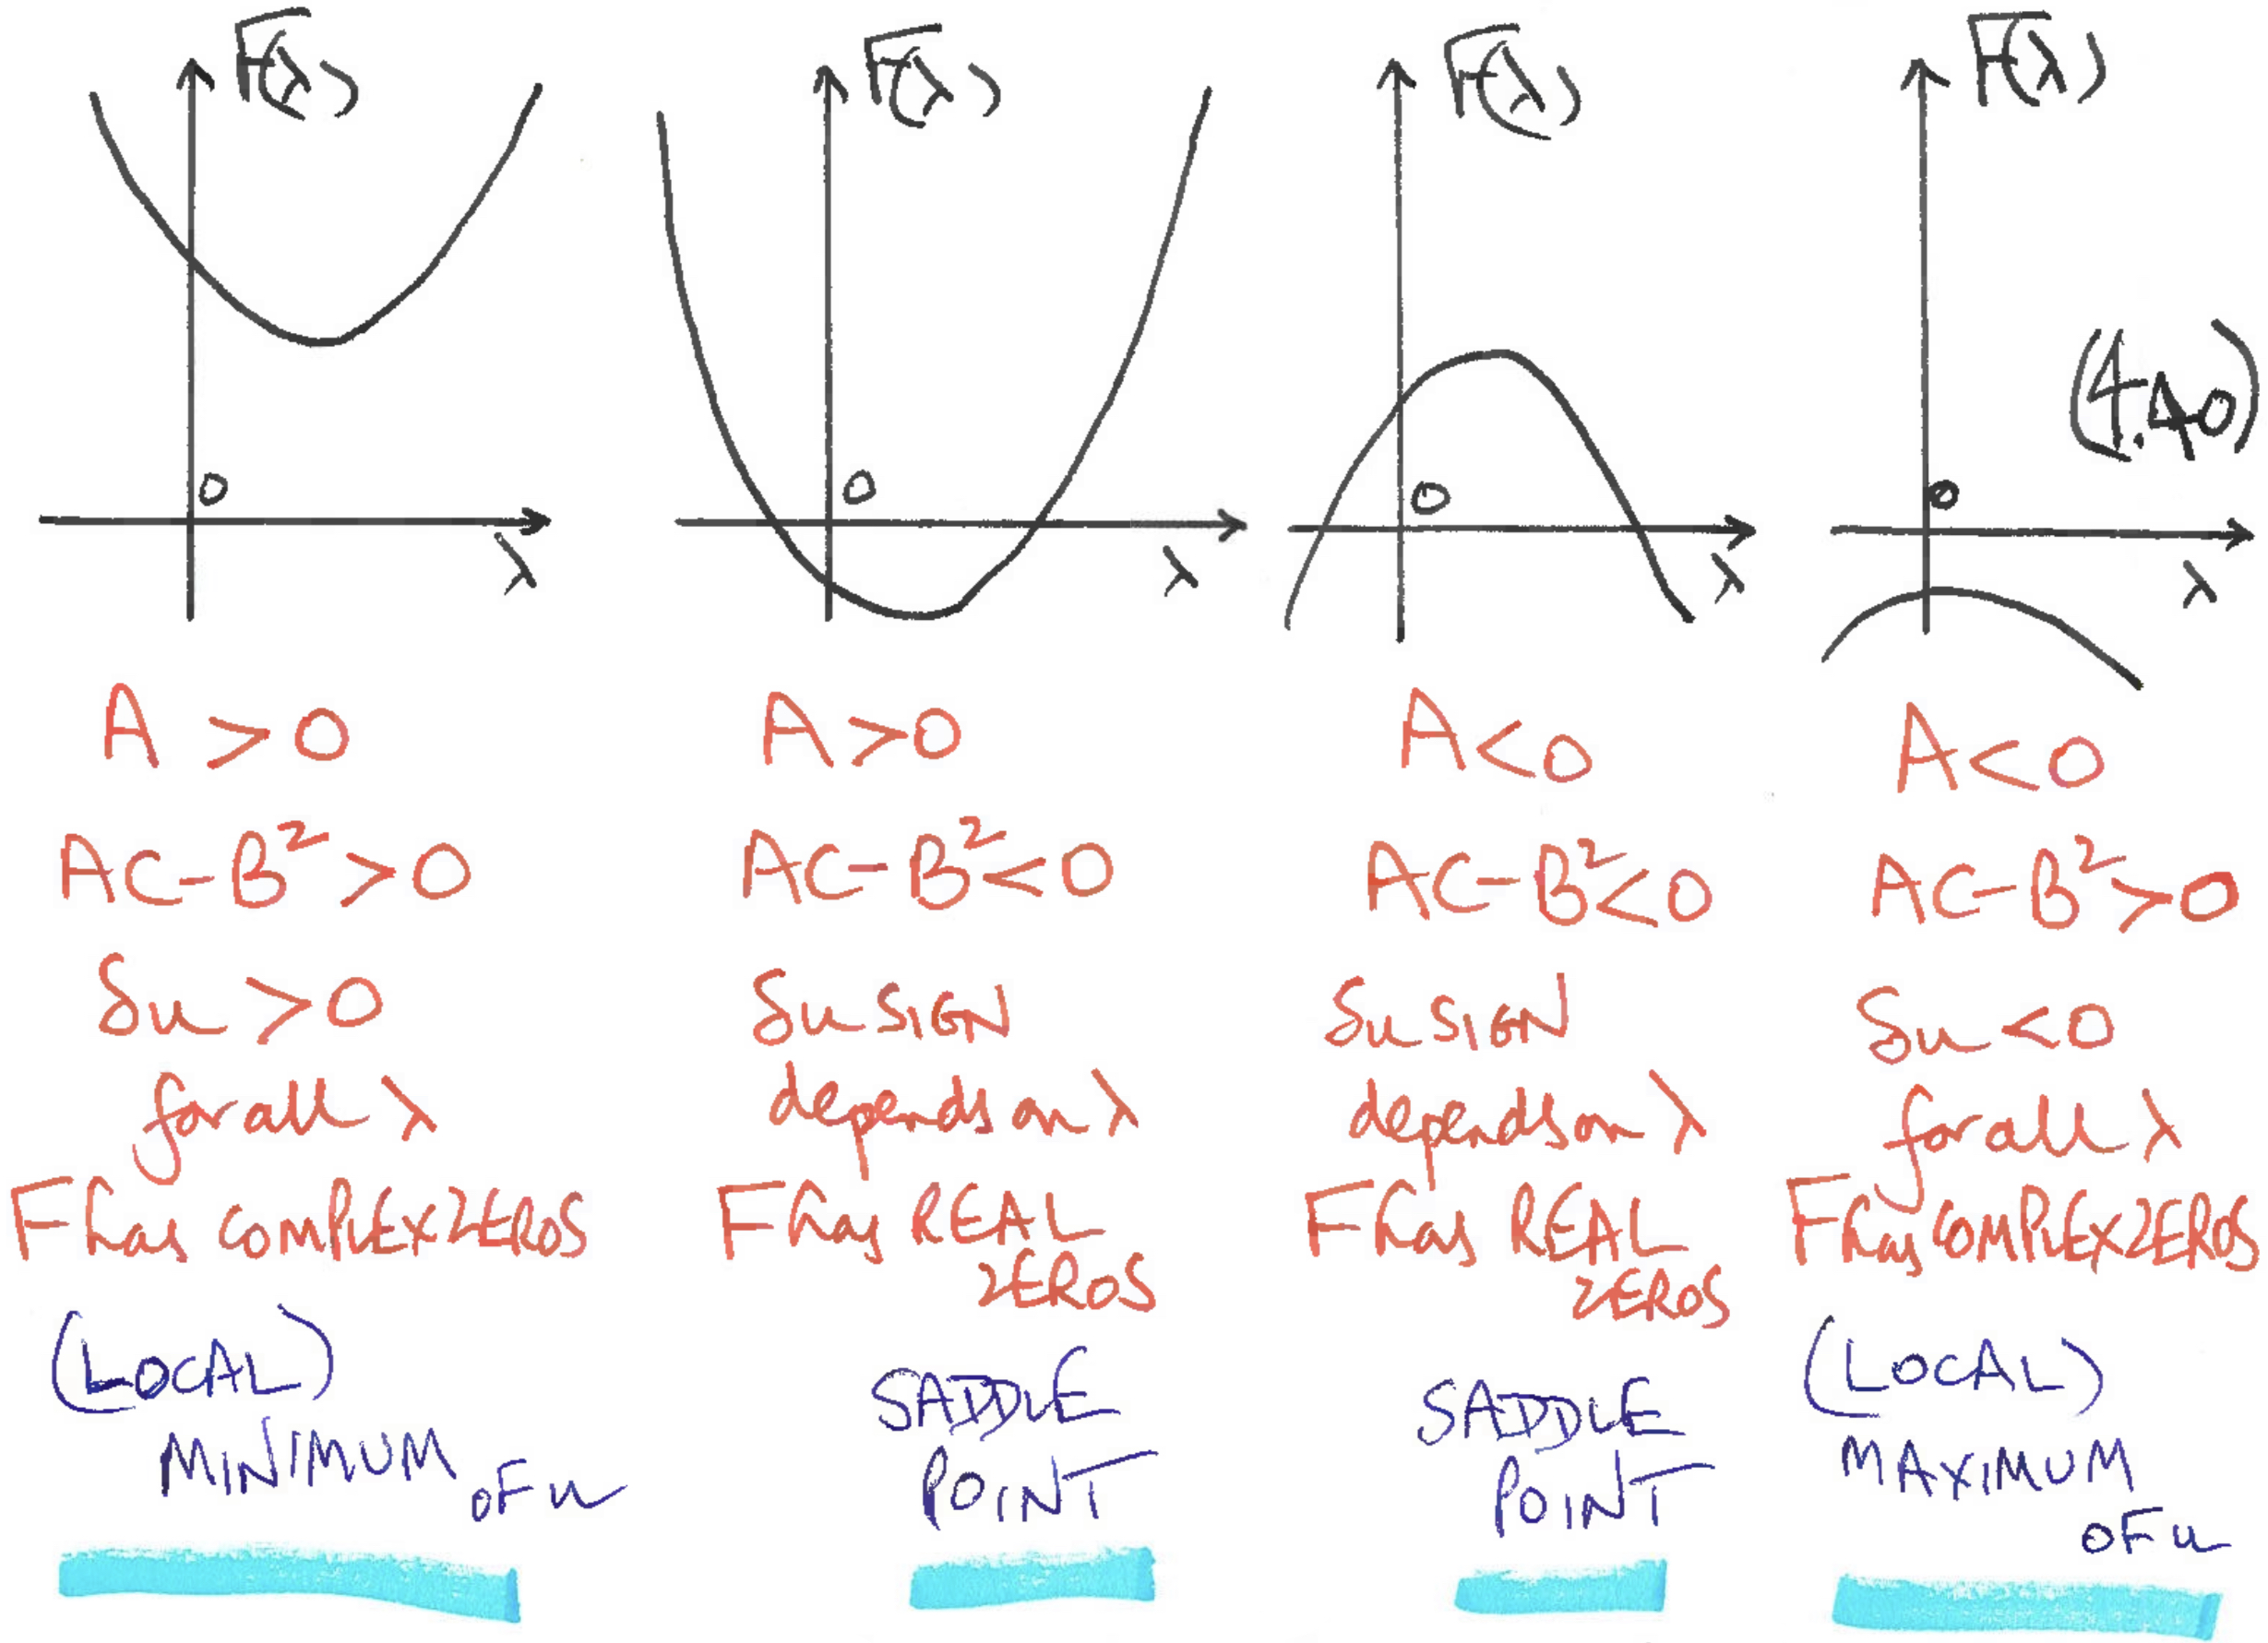 F(λ)
F(λ)
F(λ)
F(λ)
(4.40)
0
0
0
0
λ
λ
λ
λ
A > 0
AC-B² > 0
δu > 0
for all λ
F has COMPLEX ZEROS
(LOCAL)
MINIMUM
OF u
A > 0
AC-B² < 0
δu SIGN
depends on λ
F has REAL
ZEROS
SADDLE
POINT
A < 0
AC-B² < 0
δu SIGN
depends on λ
F has REAL
ZEROS
SADDLE
POINT
A < 0
AC-B² > 0
δu < 0
for all λ
F has COMPLEX ZEROS
(LOCAL)
MAXIMUM
OF u